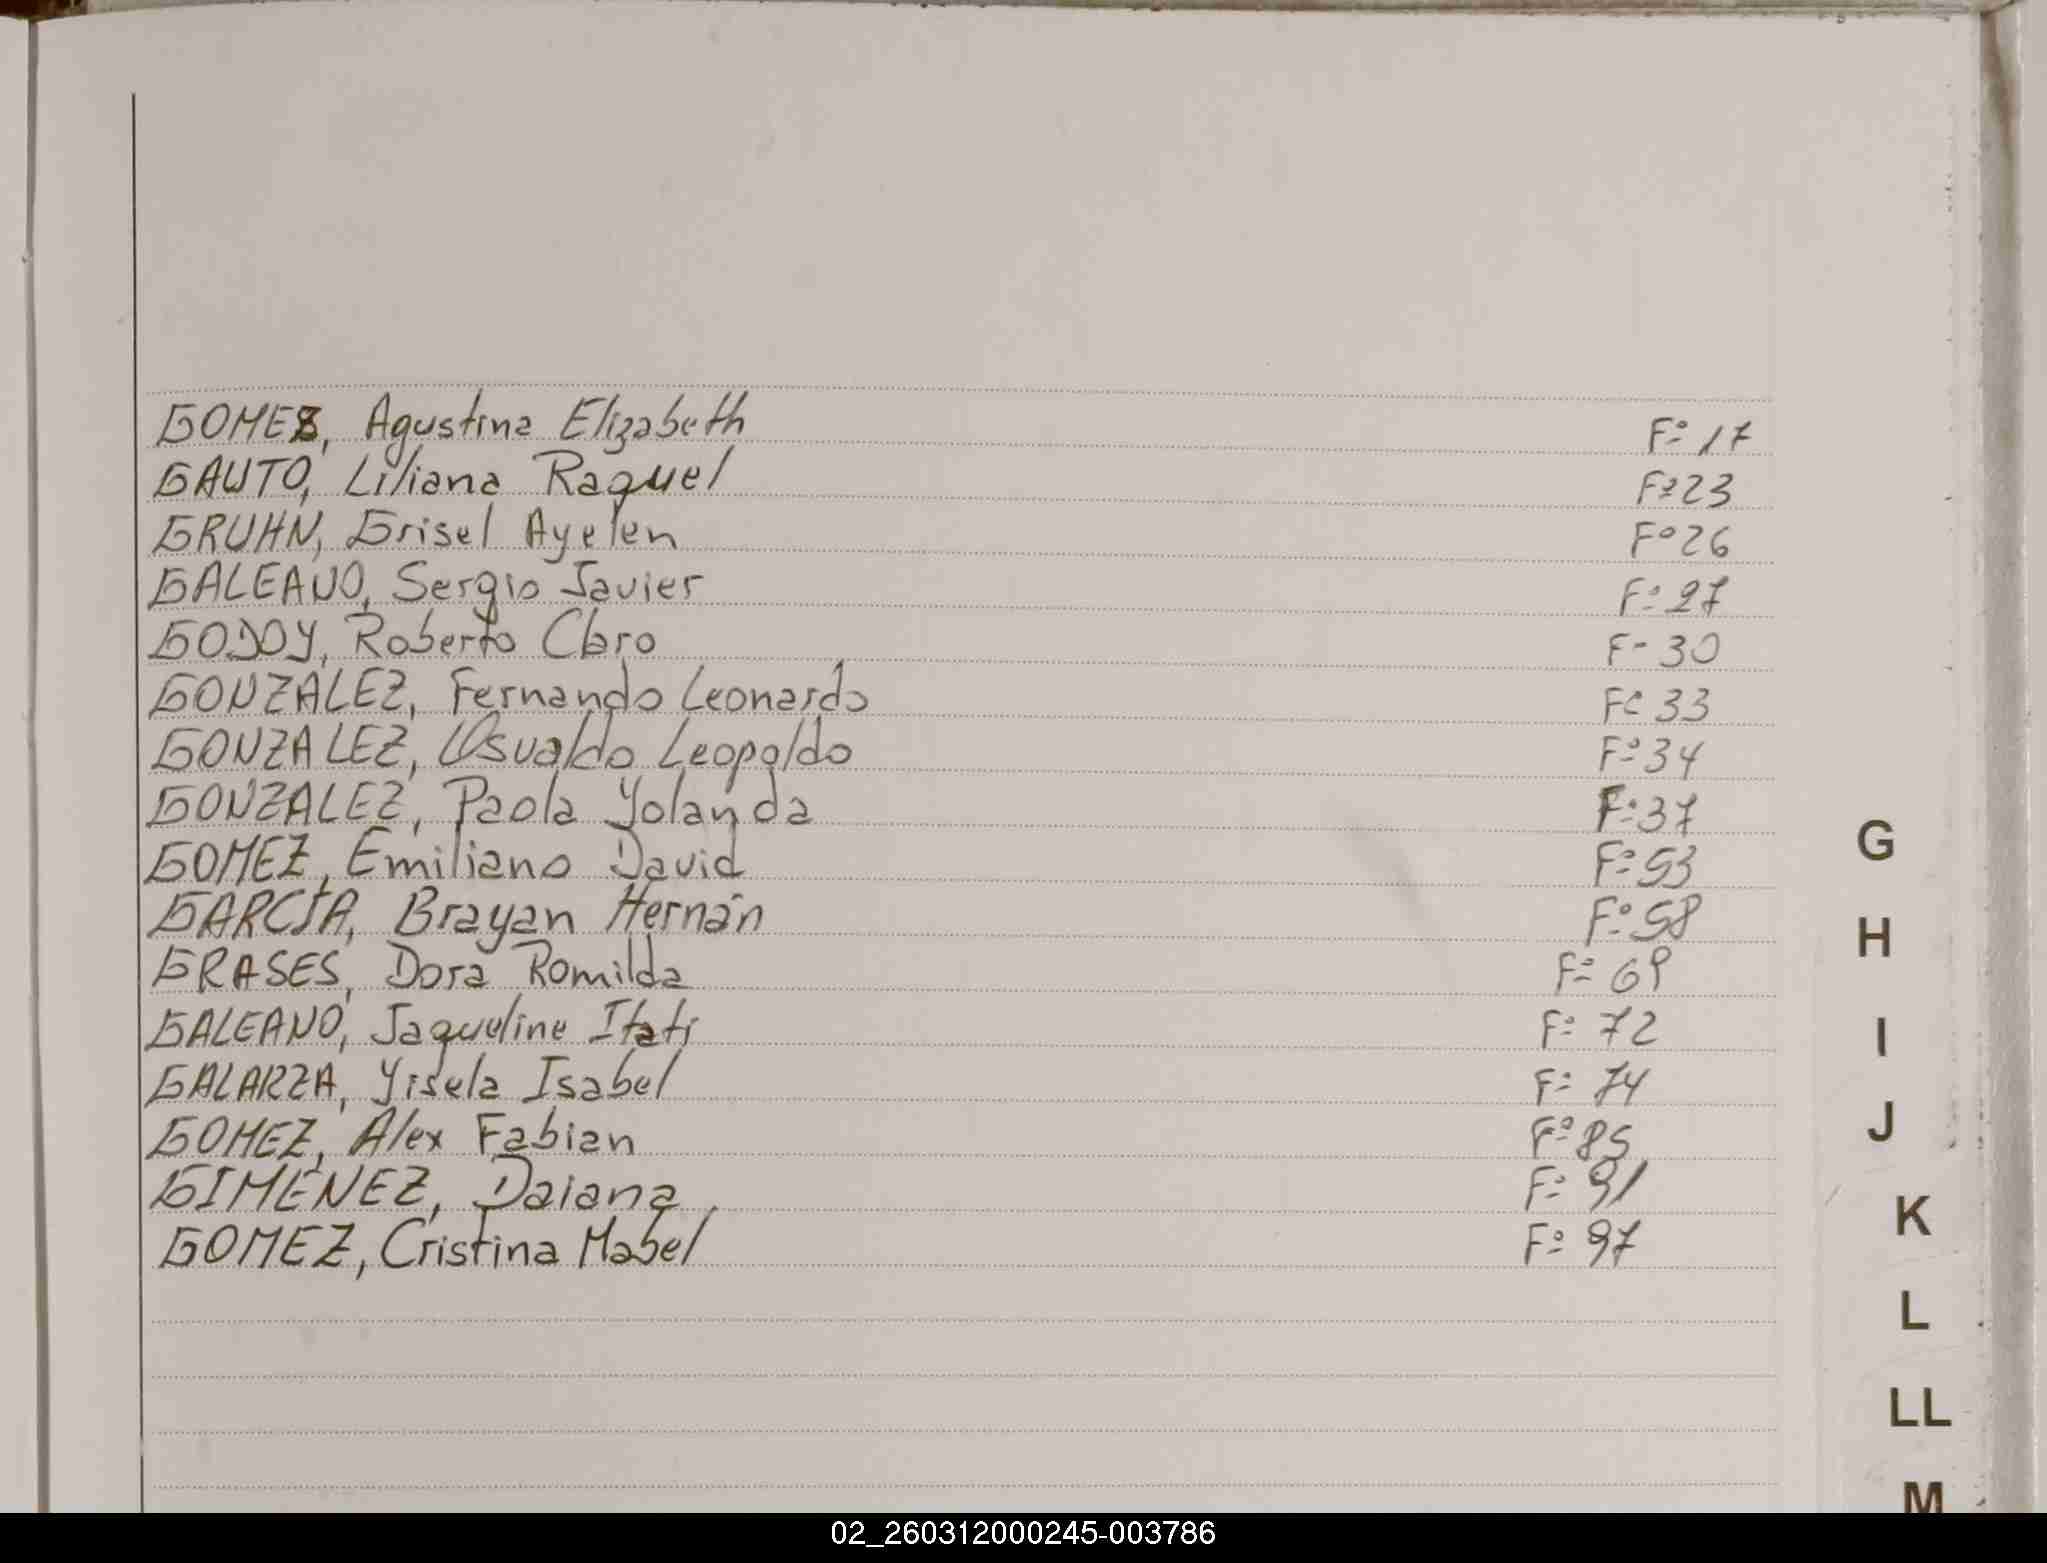 GOMEZ, Agustina Elizabeth Fº 17
GAUTO, Liliana Raquel Fº 23
GRUHN, Grisel Ayelen Fº 26
GALEANO, Sergio Javier Fº 27
GODOY, Roberto Claro Fº 30
GONZALEZ, Fernando Leonardo Fº 33
GONZALEZ, Osvaldo Leopoldo Fº 34
GONZALEZ, Paola Yolanda Fº 37
GOMEZ, Emiliano David Fº 53
GARCIA, Brayan Hernán Fº 58
GRASES, Dora Romilda Fº 69
GALEANO, Jaqueline Itati Fº 72
GALARZA, Yisela Isabel Fº 74
GOMEZ, Alex Fabian Fº 85
GIMENEZ, Daiana Fº 91
GOMEZ, Cristina Mabel Fº 97
G
H
I
J
K
L
LL
M
02_260312000245-003786